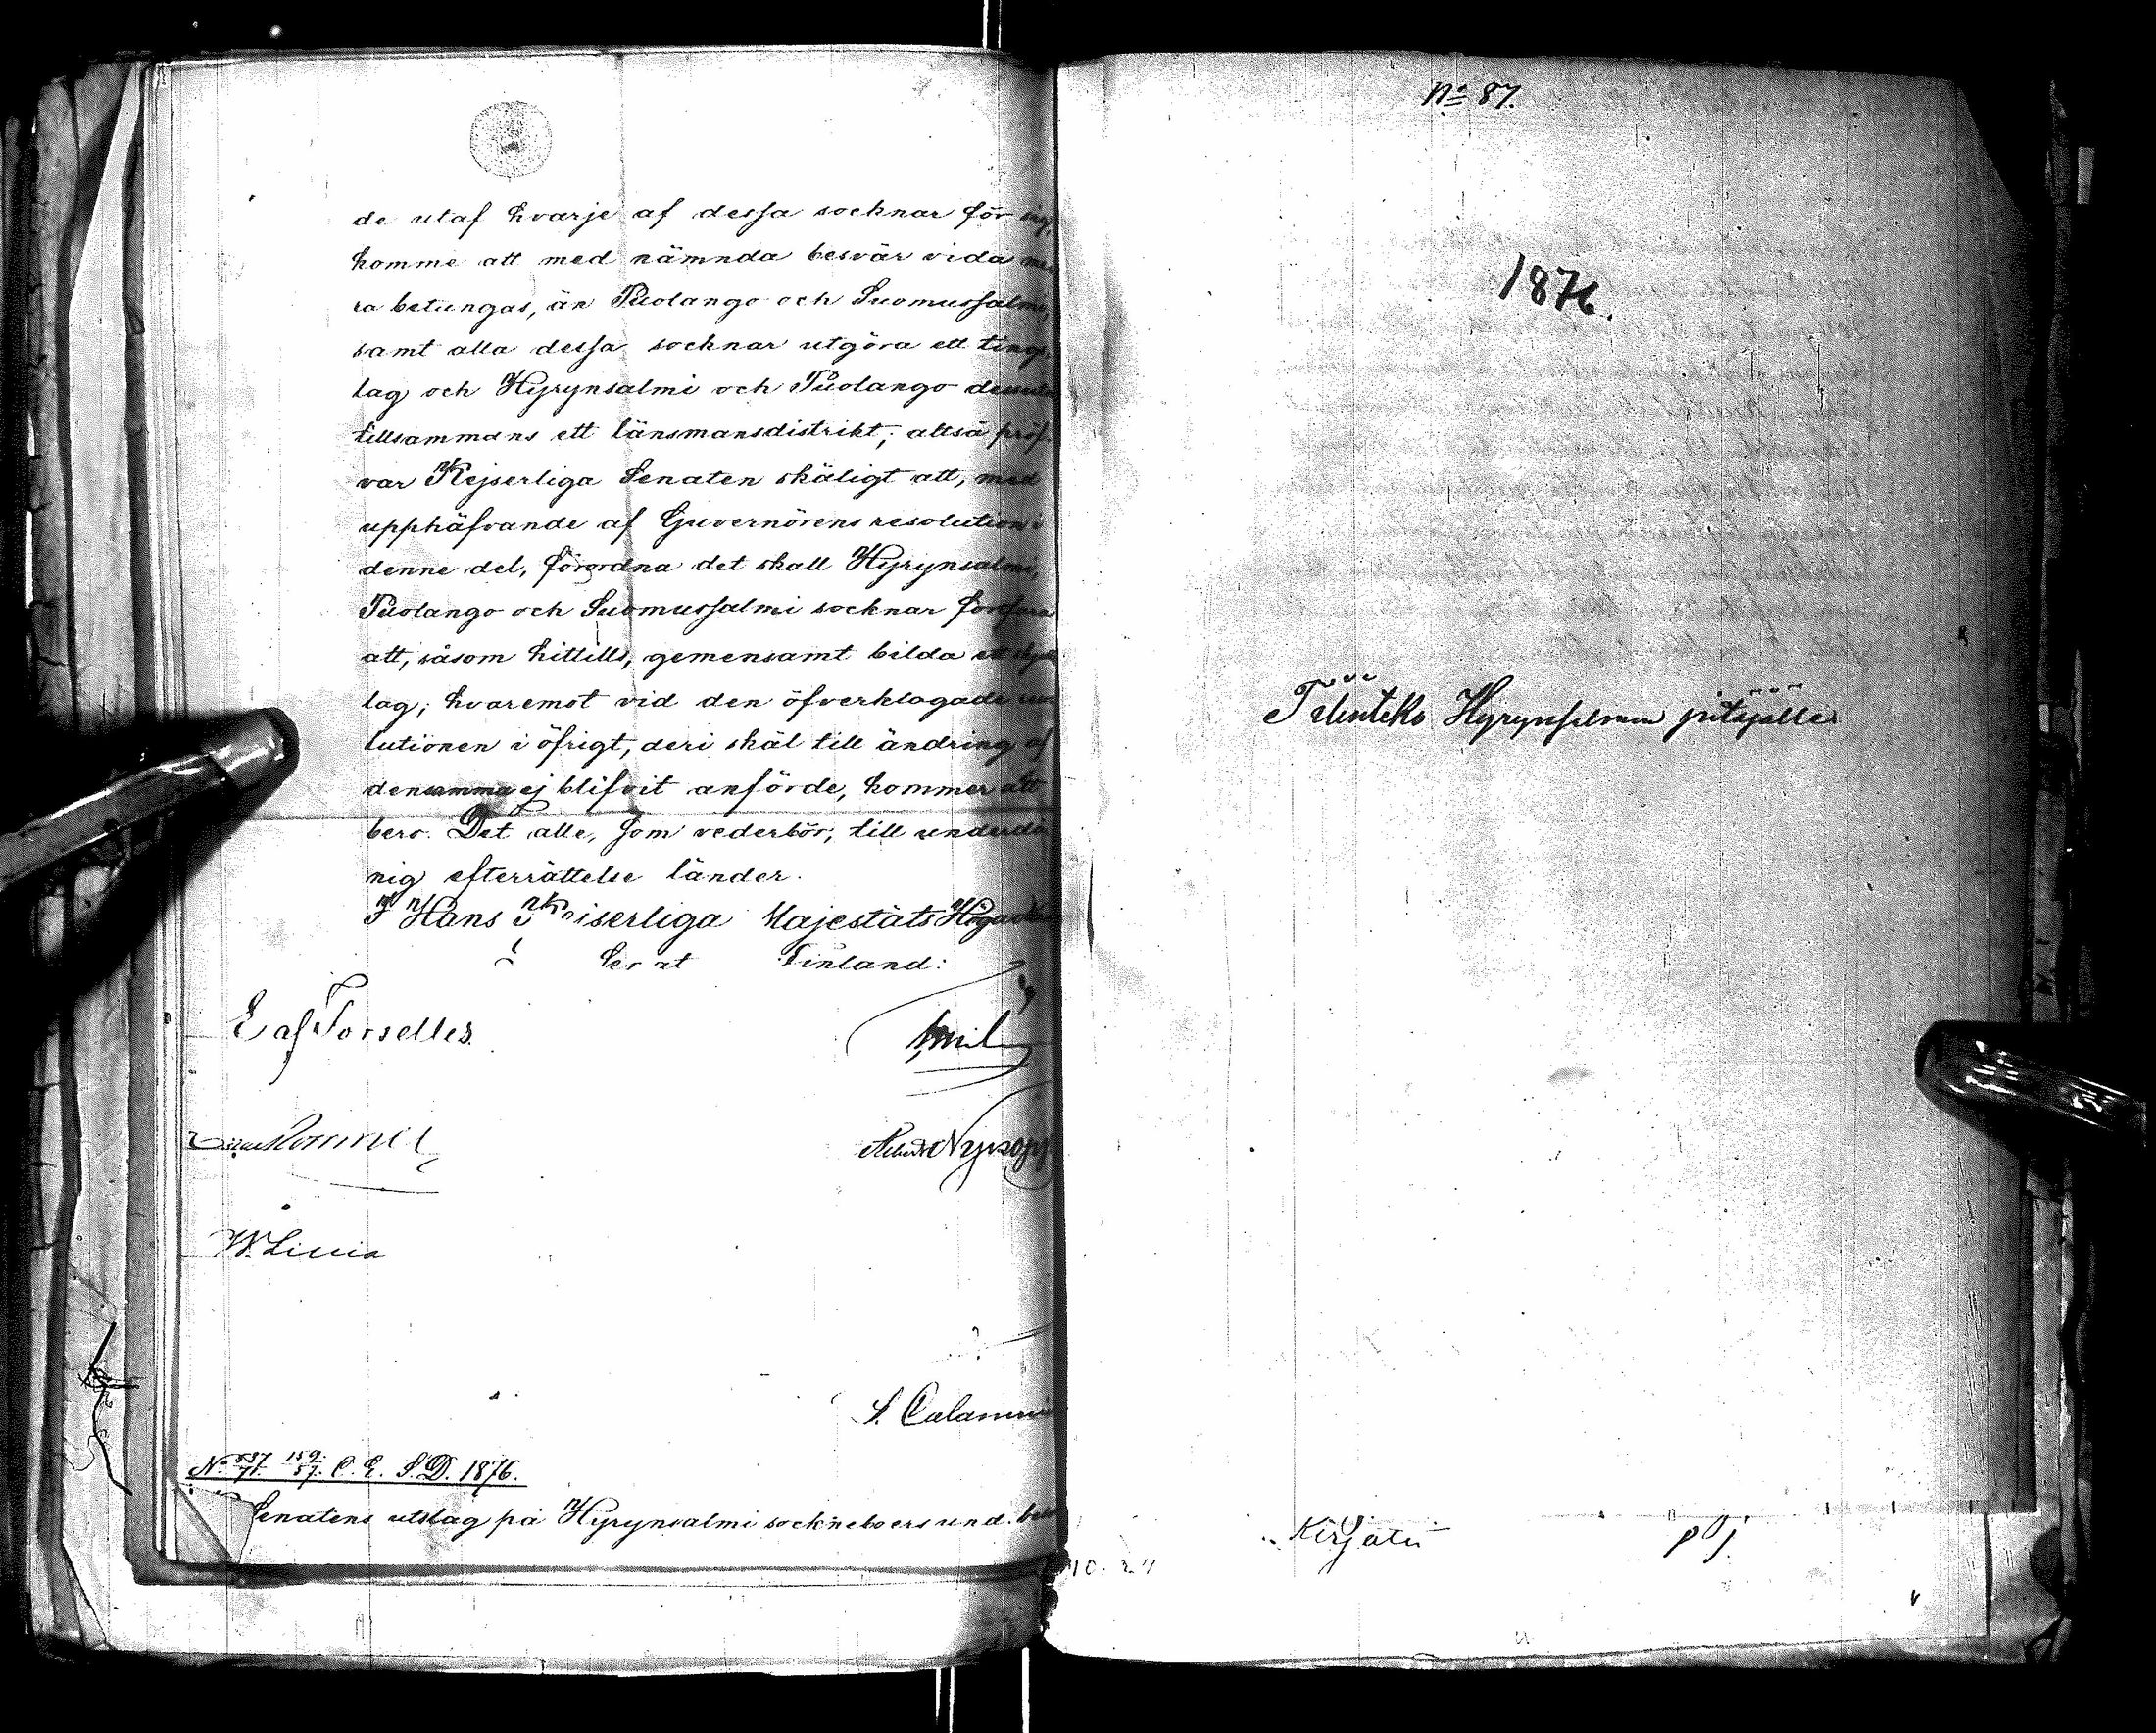 de utaf hvarje af dessa socknar för sig,
komme att med nämnda besvär vida me
ra betungas, än Puolango och Suomussalmi,
samt alla dessa socknar utgöra ett tings
lag och Hyrynsalmi och Puolango dessuta
tillsammans ett länsmansdistrikt; altså pröf-
var Kejserliga Senaten skäligt att, med
upphäfvande af Guvernörens resolution i
denne del, förordna det skall Hyrynsalmi,
Puolango och Suomussalmi socknar fortfara
att, såsom hittills, gemensamt bilda ett
lag; hvaremot vid den öfverklagade
lutionen i öfrigt, deri skäl till ändring af
densamma ej blifvit anförde, kommer att
bero. Det alle, som vederbör, till underdå
nig efterrättelse länder.
I Hans Kejserliga Majestäts Höga
Senat Finland:
E af Forselles
Albert Nykopp
S. Calamnius
No 537/71 159/57 C. E. S.D. 1876.
Senatens utslag på Hyrynsalmi sockneboers und.
No 87.
1876.
Hyrynsalmen pitäjälle
Kirjatu